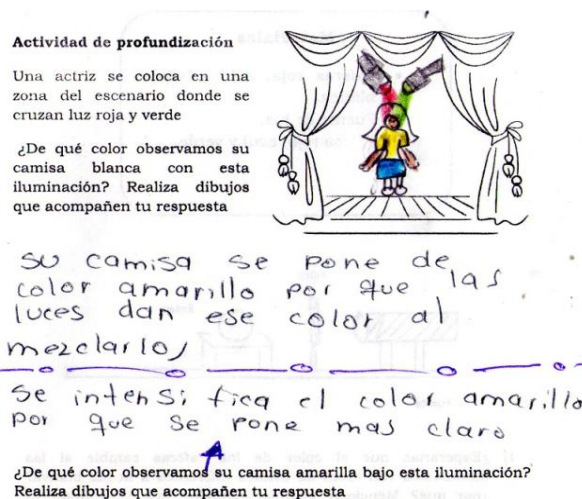 Actividad de profundización
Una actriz se coloca en una
zona del escenario donde se
cruzan luz roja y verde
¿De qué color observamos su
camisa blanca con esta
iluminación? Realiza dibujos
que acompañen tu respuesta
su camisa se pone de
color amarillo por que las
luces dan ese color al
mezclarlos
se intensifica el color amarillo
por que se pone mas claro
¿De qué color observamos su camisa amarilla bajo esta iluminación?
Realiza dibujos que acompañen tu respuesta